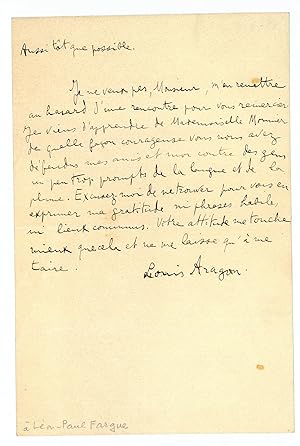 Aussitôt que possible.
Je ne veux pas, Monsieur, m'en remettre
au hasard d'une rencontre pour vous remercier.
Je viens d'apprendre de Mademoiselle Monnier
de quelle façon courageuse vous nous avez
défendus mes amis et moi contre des gens
un peu trop prompts de la langue et de la
plume. Excusez-moi de ne trouver pour vous en
exprimer ma gratitude ni phrases habiles,
ni lieux communs. Votre attitude me touche
mieux que cela et ne me laisse qu'à me
taire.
Louis Aragon.
à Léon-Paul Fargue